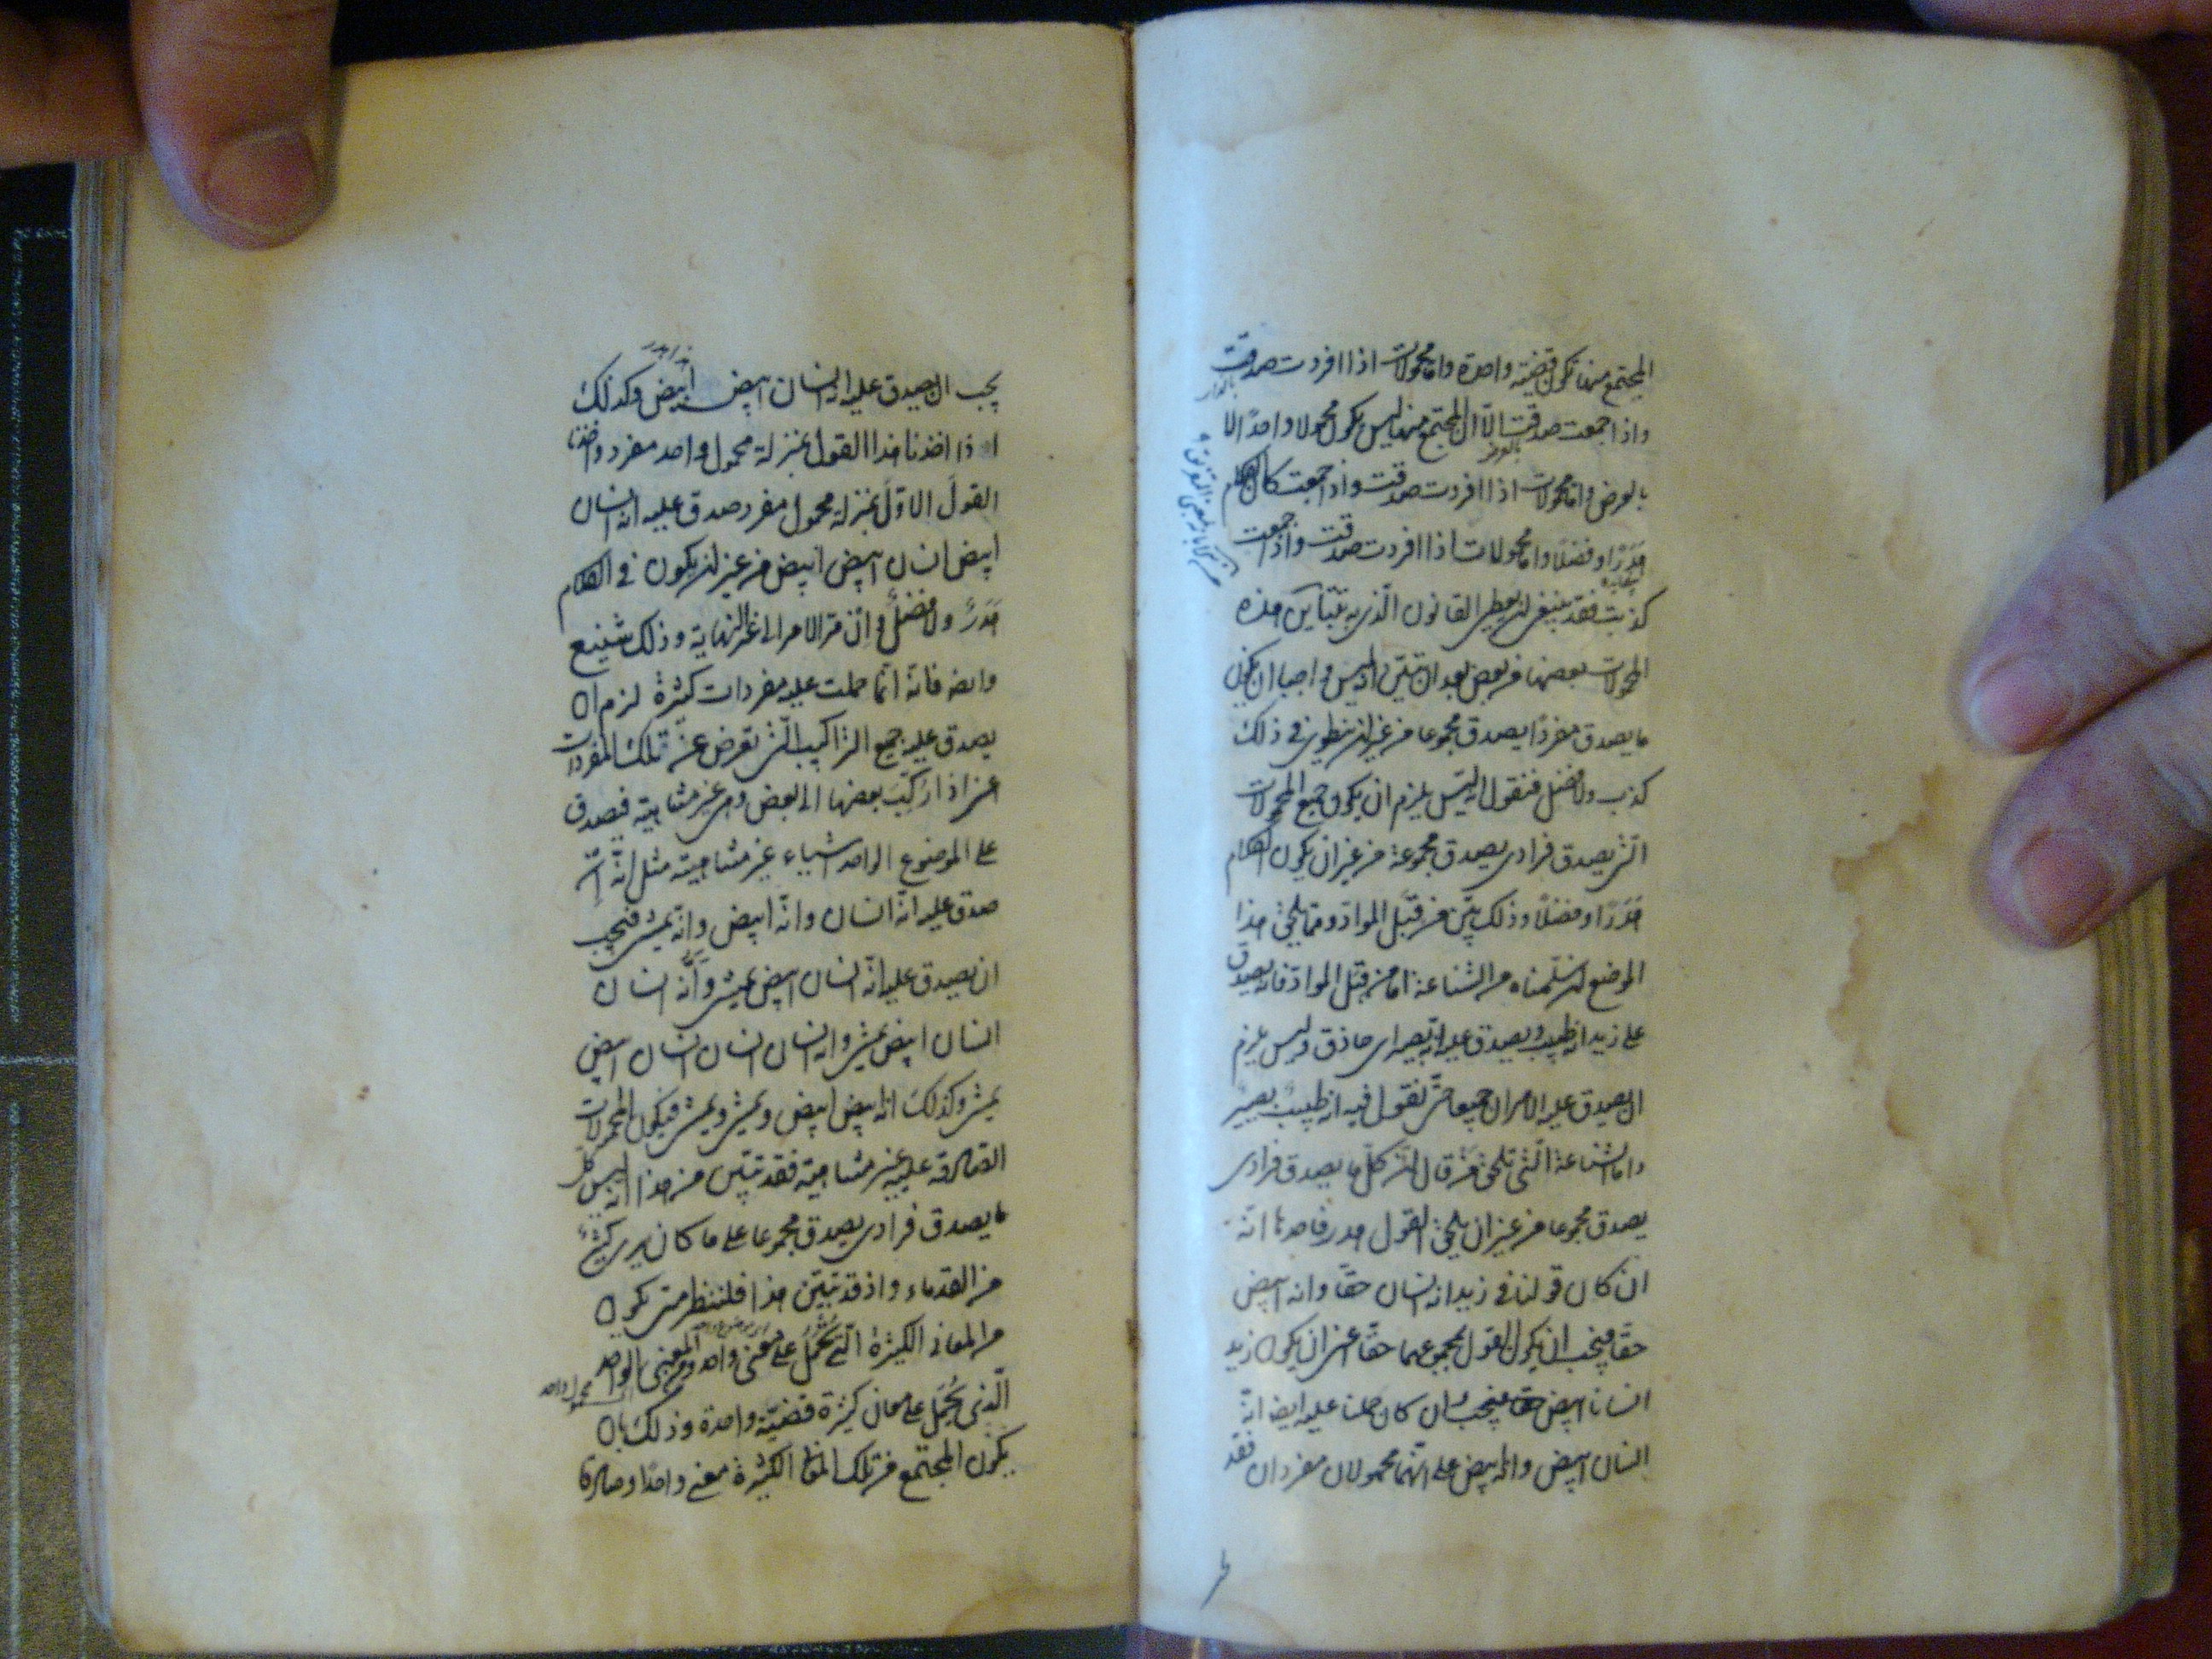 المجتمع منها تكون قضية واحدة واما محمولات اذا افردت صدقت
واذا جمعت صدقت الا ان المجتمع منها ليس يكون محمولا واحدا الا
بالعرض واما محمولات اذا افردت صدقت واذا جمعت كان الكلام
هَدَرًا او فضلا واما محمولات اذا افردت صدقت واذا جمعت
كذبت فقد ينبغى ان يعطى القانون الذى به تتباين هذه
المحمولات بعضها من بعض بعد ان تبين انه ليس واجبا ان يكون
ما يصدق مفردًا يصدق مجموعا من غير ان ينطوى فى ذلك
كذب ولا فضل فنقول انه ليس يلزم ان يكون جميع المحمولات
التى يصدق فرادى يصدق مجموعة من غير ان يكون الكلام
هَدَرًا او فضلاً وذلك بيّن من قِبَل المواد ومما يلحق هذا
الموضع ان سلمناه من الشناعة اما من قبل المواد فانه يصدق
على زيد انه طبيب ويصدق عليه انه بصير اى حاذق وليس يلزم
ان يصدق عليه الامران جميعا حتى نقول فيه انه طبيبٌ بصيرٌ
واما الشناعة التى تلحق مَن قال ان كلّ ما يصدق فرادى
يصدق مجموعا من غير ان يلحق القول هدر فاحدها انّه
ان كان قولنا فى زيد انه انسان حقّا وانه ابيض
حقّا فيجب ان يكون القول بمجموعهما حقّا اعنى ان يكون زيد
انسانا ابيض حقا فيجب ان كان حملنا عليه ايضا انّه
انسان ابيض وانه ابيض على انّهما محمولان مفردان فقد
يجب ان يصدق عليه انه انسان ابيض ابيض وكذلك
اذا اخذنا هذا القول بمنزلة محمول واحد مفرد واخذنا
القولَ الاوّلَ بمنزلة محمول مفرد صدق عليه انه انسان
ابيض انسان ابيض ابيض من غير ان يكون فى الكلام
هَدَرٌ ولا فضلٌ وان مرّ الامر الى غير النهاية وذلك شنيع
وايضا فانه انّما حملت عليه مفردات كثيرة لزم ان
يصدق عليه جميع التراكيب التى تعرض عن تلك المفردات
اعنى اذا رُكّبَ بعضها الى بعض وهى غير متناهية فيصدق
على الموضوع الواحد اشياء غير متناهية مثل انّه ان
صدق عليه انّه انسان وانّه ابيض وانّه يمشى فيجب
ان يصدق عليه انّه انسان ابيض يمشى وانّه انسان
انسان ابيض يمشى وانه انسان انسان انسان ابيض
يمشى وكذلك انه ابيض ابيض ويمشى ويمشى فيكون المحمولات
الصادقة عليه غير متناهية فقد تبيّن من هذا انّه ليس كل
ما يصدق فرادى يصدق مجموعا على ما كان يرى كثيرٌ
من القدماء واذ قد تبيّن هذا فلننظر متى يكون
من المعانى الكثيرة الّتى تُحمَلُ على معنى واحد ومن المعنى الواحد
الّذى يُحمَل على معان كثيرة قضيّة واحدة وذلك بان
يكون المجتمع من تلك المعانى الكثيرة معنى واحدًا وصادقا